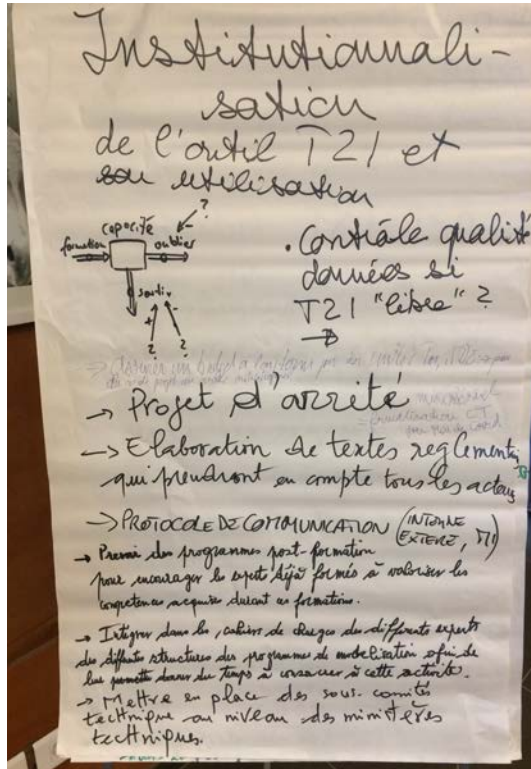 Institutionnali-
sation
de l'outil T21 et
son utilisation
?
-
capacité
formation
oublier
sortir
+
-
?
?
• Contrôle qualité
données si
T21 "libre" ?
→
→ un budget
→ Projet d'arrité
→ Elaboration de textes reglementa
qui prendront en compte tous les acteurs
→ PROTOCOLE DE COMMUNICATION (INTERNE
EXTERE, M)
→ Prevoir des programmes post-formation
pour encourager les experts déjà formés à valoriser les
competences acquises durant ces formations.
→ Intégrer dans les cahiers de charges des différents experts
des différentes structures des programmes de modelisation afin de
leur permettre donner du temps à consacrer à cette activité.
→ Mettre en place des sous-comités
technique au niveau des ministères
techniques.